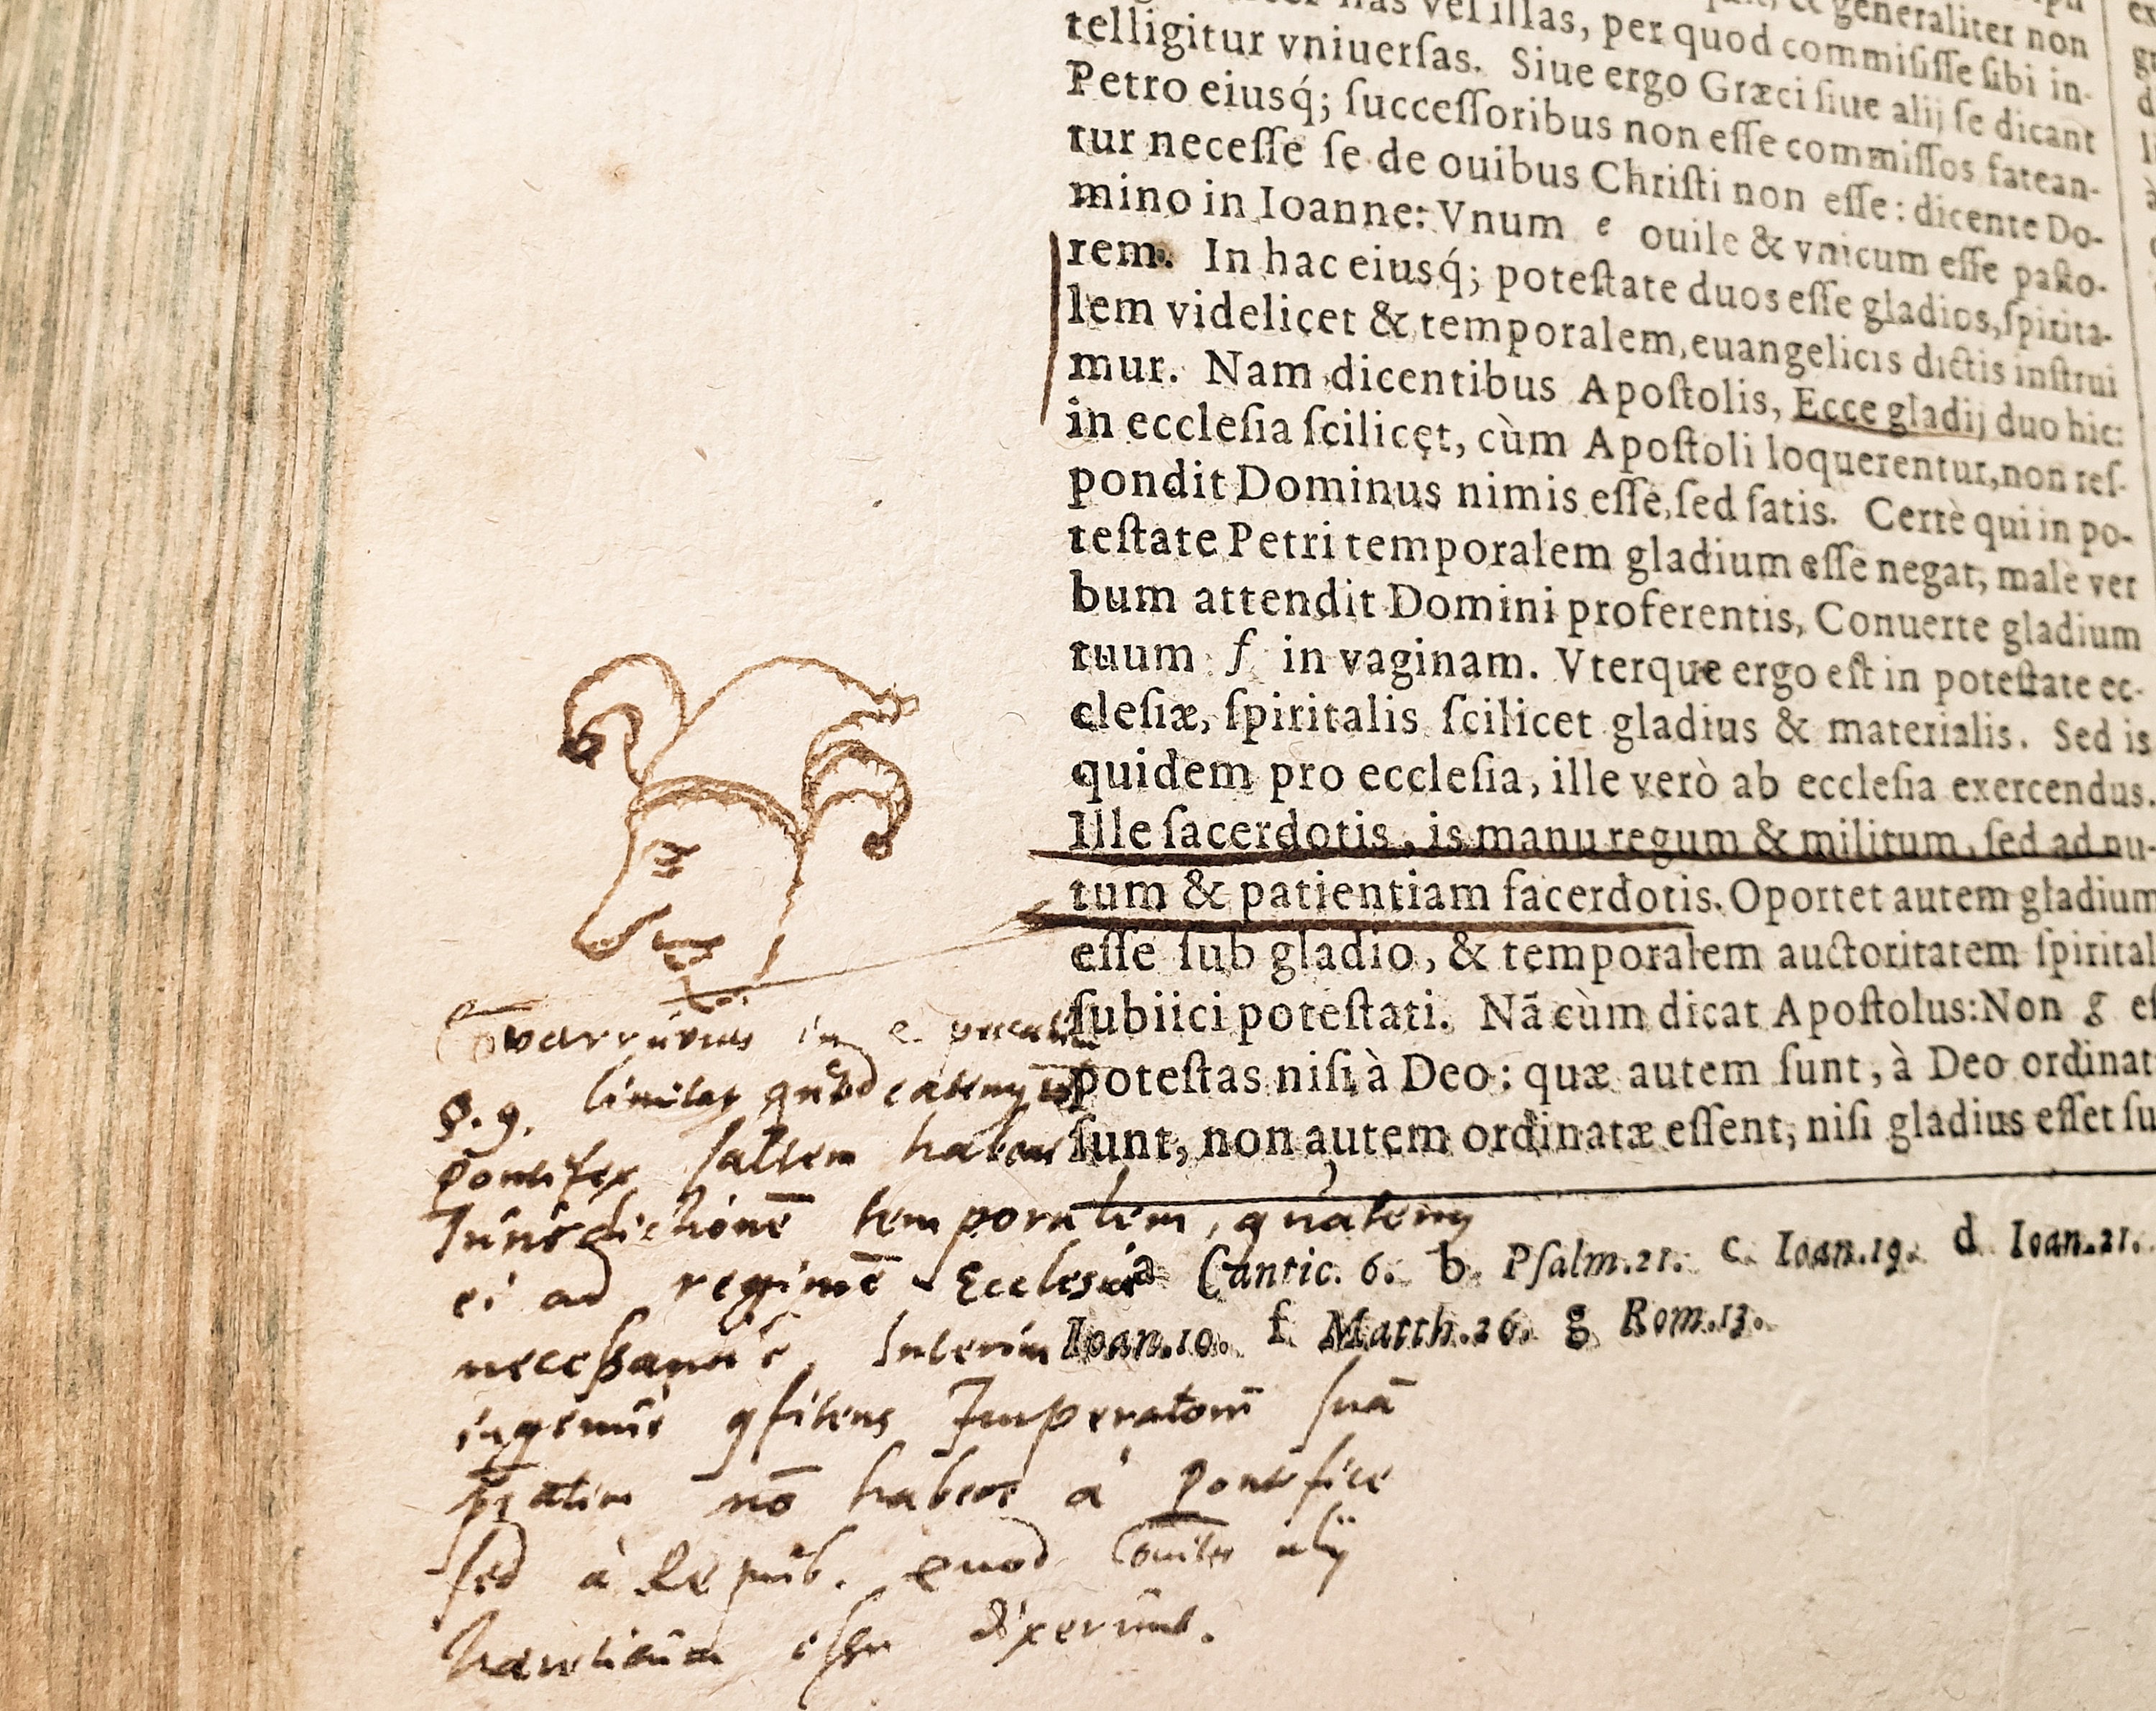 has vel illas, per quod commisisse sibi in-
& generaliter non
telligitur vniuerſas. Siue ergo Græci ſiue alij ſe dicant
Petro eiusq́; ſucceſſoribus non eſſe commiſſos fatean-
tur neceſſe ſe de ouibus Chriſti non eſſe: dicente Do-
mino in Ioanne: Vnum e ouile & vnicum eſſe paſto-
rem. In hac eiusq́; poteſtate duos eſſe gladios, ſpirita-
lem videlicet & temporalem, euangelicis dictis inſtrui
mur. Nam dicentibus Apoſtolis, Ecce gladij duo hic:
in eccleſia ſcilicęt, cùm Apoſtoli loquerentur, non reſ-
pondit Dominus nimis eſſe, ſed ſatis. Certè qui in po-
teſtate Petri temporalem gladium eſſe negat, malè ver
bum attendit Domini proferentis, Conuerte gladium
tuum f in vaginam. Vterque ergo eſt in poteſtate ec-
cleſiæ, ſpiritalis ſcilicet gladius & materialis. Sed is
quidem pro eccleſia, ille verò ab eccleſia exercendus.
Ille ſacerdotis, is manu regum & militum, ſed ad nu-
tum & patientiam ſacerdotis. Oportet autem gladium
eſſe ſub gladio, & temporalem auctoritatem ſpirital
ſubiici poteſtati. Nã cùm dicat Apoſtolus: Non g eſ
poteſtas niſi à Deo: quæ autem ſunt, à Deo ordinat
ſunt, non autem ordinatæ eſſent, niſi gladius eſſet ſu
a Cantic. 6. b Pſalm. 21. c Ioan. 19. d Ioan. 21.
Ioan. 10. f Matth. 26. g Rom. 13.
Covarruvias in c. peccatum
§. 9. limitat quod catenus
Pontifex saltem habeat
Iurisdictionē temporalem, quatenus
ei ad regimē Ecclesiæ
neceßariū ē, Interim
ingenuè 9fitens Imperatorē suā
ptātem nō habere à Pontifice
sed à Repub. quod Comiter alij
hæreticum esse dixerunt.